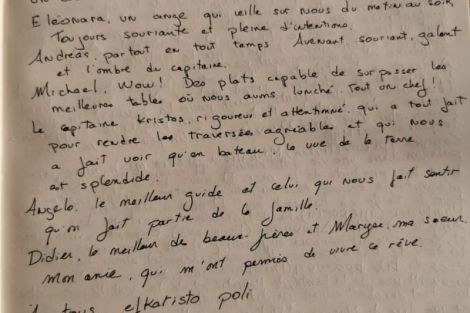 Eléonara, un ange qui veille sur nous du matin au soir
Toujours souriante et pleine d'intentions.
Andréas, partout en tout temps Avenant, souriant, galant
et l'ombre du capitaine.
Michael, Wow! Des plats capable de surpasser les
meilleures tables où nous avons lunché. Tout un chef!
Le capitaine Kristos, rigoureux et attentionné, qui a tout fait
pour rendre les traversées agréables et qui nous
a fait voir qu'en bateau, la vue de la terre
est splendide.
Angelo, le meilleur guide et celui qui nous fait sentir
qu'on fait partie de la famille.
Didier, le meilleur de beaux-frères et Maryse, ma soeur,
mon amie, qui m'ont permis de vivre ce rêve.
tous efkaristo poli